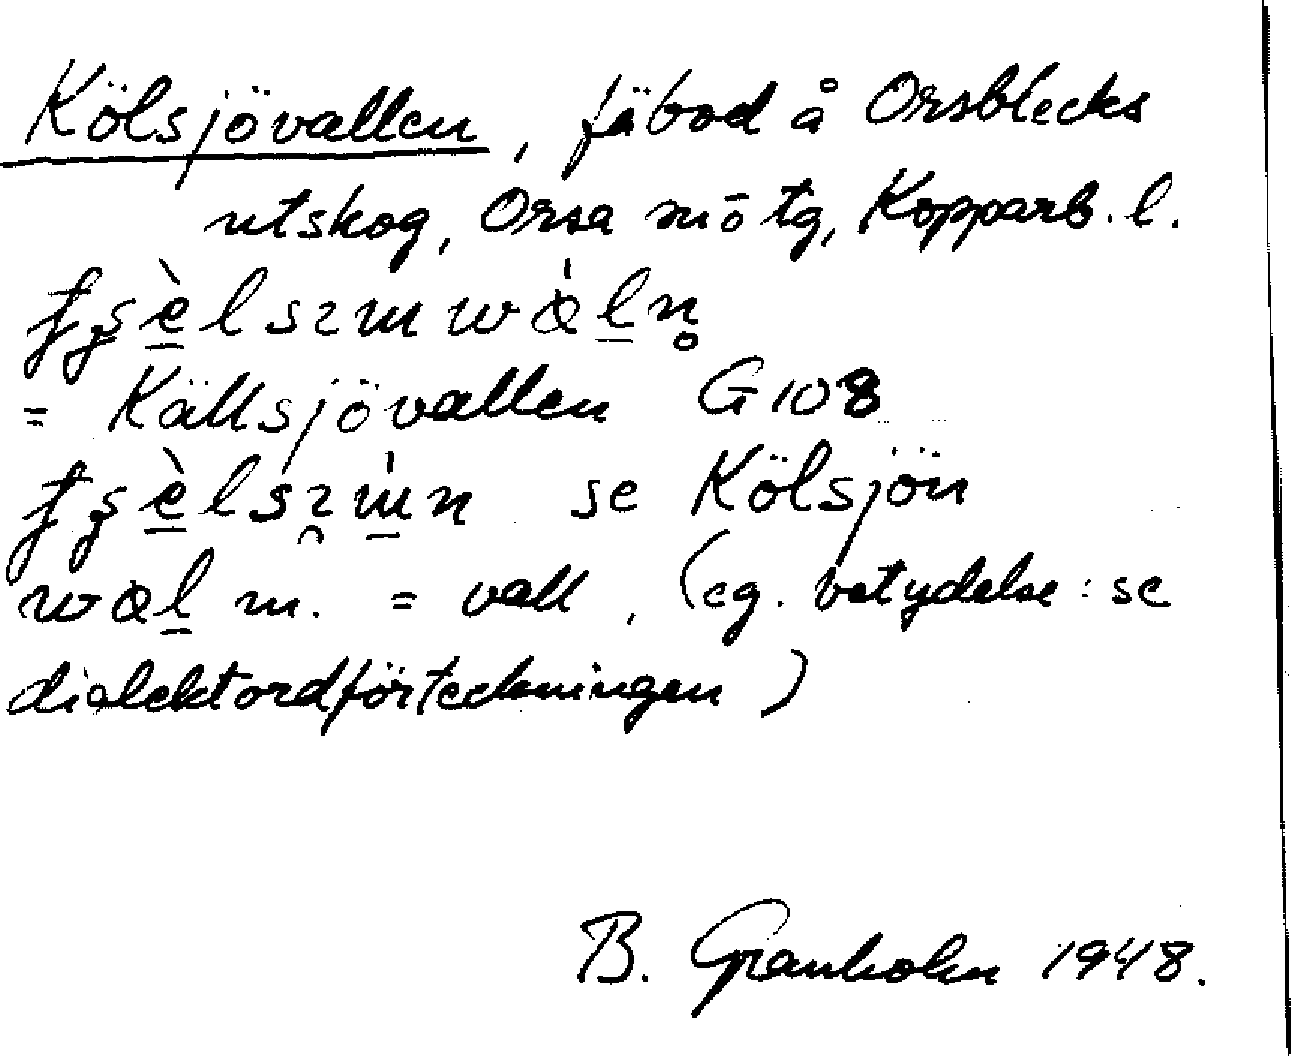 Kölsjövallen, fäbod å Orsblecks
utskog, Orsa snōtg, Kopparb. l.
= Källsjövallen G 108
se Kölsjön
m. = vall, (eg. betydelse: se
dialektordförteckningen)
B. Granholm 1948.